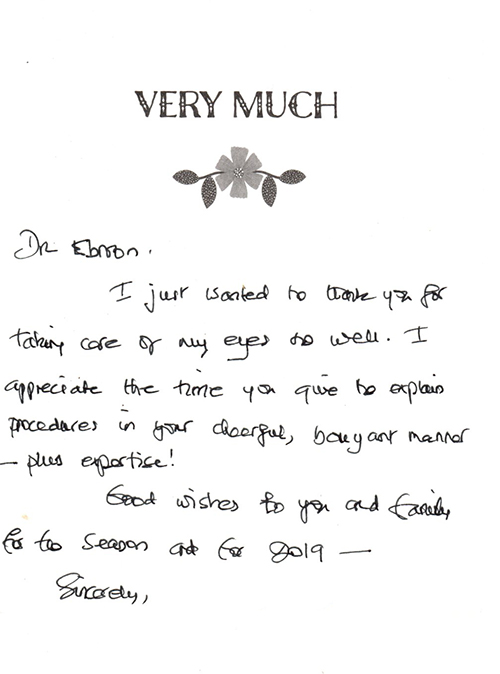 VERY MUCH
Dr. Ebroon.
I just wanted to thank you for
taking care of my eyes so well. I
appreciate the time you give to explain
procedures in your cheerful, bouyant manner
— plus expertise!
Good wishes to you and family
for the Season and for 2019 —
Sincerely,